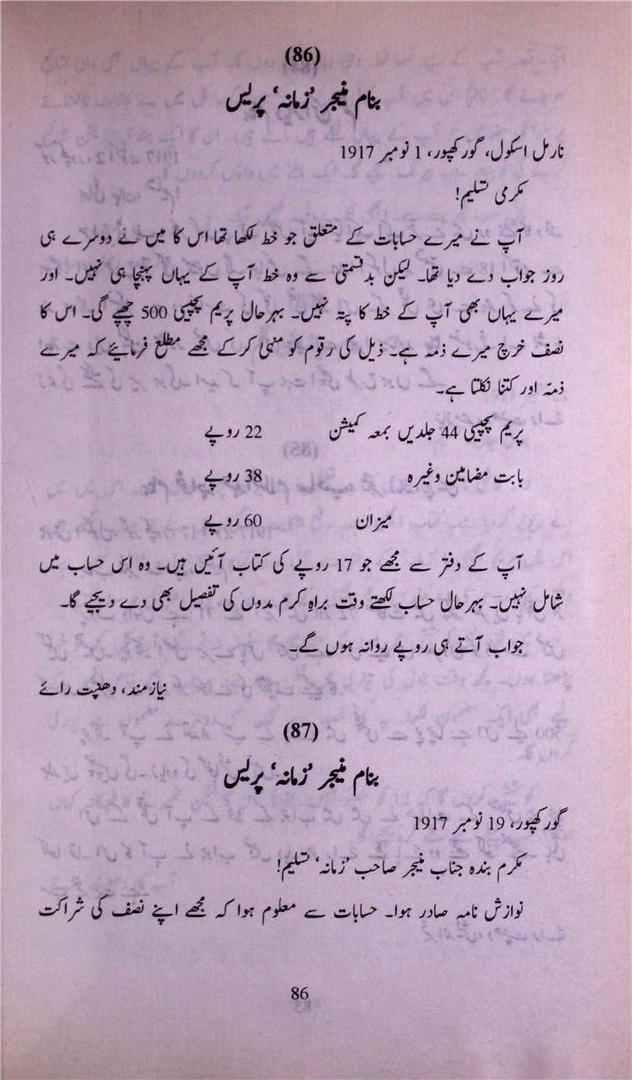 (86)
بنام منیجر ’زمانہ‘ پریس
نارمل اسکول، گورکھپور، 1 نومبر 1917
مکرمی تسلیم!
آپ نے میرے حسابات کے متعلق جو خط لکھا تھا اس کا میں نے دوسرے ہی
روز جواب دے دیا تھا۔ لیکن بدقسمتی سے وہ خط آپ کے یہاں پہنچا ہی نہیں۔ اور
میرے یہاں بھی آپ کے خط کا پتہ نہیں۔ بہرحال پریم پچیسی 500 چھپے گی۔ اس کا
نصف خرچ میرے ذمہ ہے۔ ذیل کی رقوم کو منہی کرکے مجھے مطلع فرمائیے کہ میرے
ذمّہ اور کتنا نکلتا ہے۔
پریم پچیسی 44 جلدیں بمعہ کمیشن 22 روپے
بابت مضامین وغیرہ 38 روپے
میزان 60 روپے
آپ کے دفتر سے مجھے جو 17 روپے کی کتاب آئیں ہیں۔ وہ اس حساب میں
شامل نہیں۔ بہرحال حساب لکھتے وقت براہِ کرم مدوں کی تفصیل بھی دے دیجیے گا۔
جواب آتے ہی روپے روانہ ہوں گے۔
نیازمند، دھنپت رائے
(87)
بنام منیجر ’زمانہ‘ پریس
گورکھپور، 19 نومبر 1917
مکرم بندہ جناب منیجر صاحب ’زمانہ‘ تسلیم!
نوازش نامہ صادر ہوا۔ حسابات سے معلوم ہوا کہ مجھے اپنے نصف کی شراکت
86